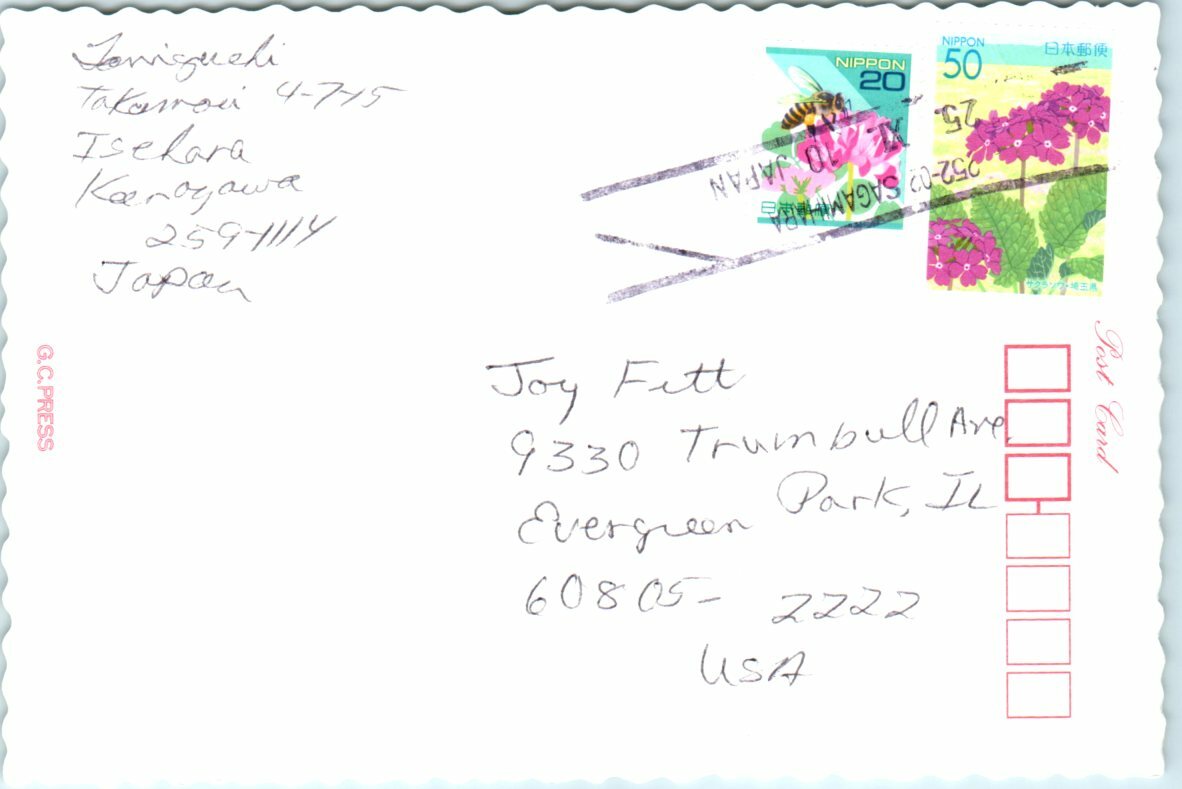 Taniguchi
Takamori 4-7-15
Isehara
Kanagawa
259-1114
Japan
NIPPON
20
日本郵便
NIPPON
50
日本郵便
サクラソウ・埼玉県
SAGAMIHARA
JAPAN
25. XI. 10
252-02
G.C.PRESS
Post Card
Joy Fett
9330 Trumbull Ave
Evergreen Park, IL
60805-2222
USA